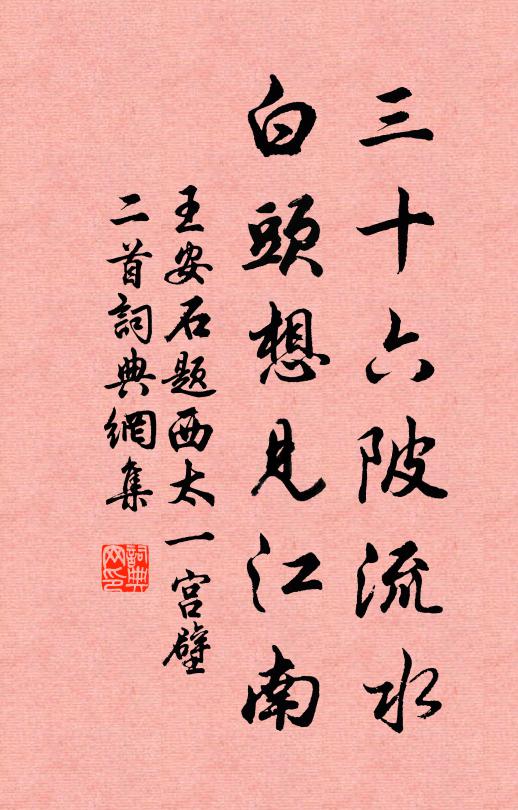 三十六陂流水
白頭想見江南
王安石題西太一宮壁
二首詞典網集
詞典網印